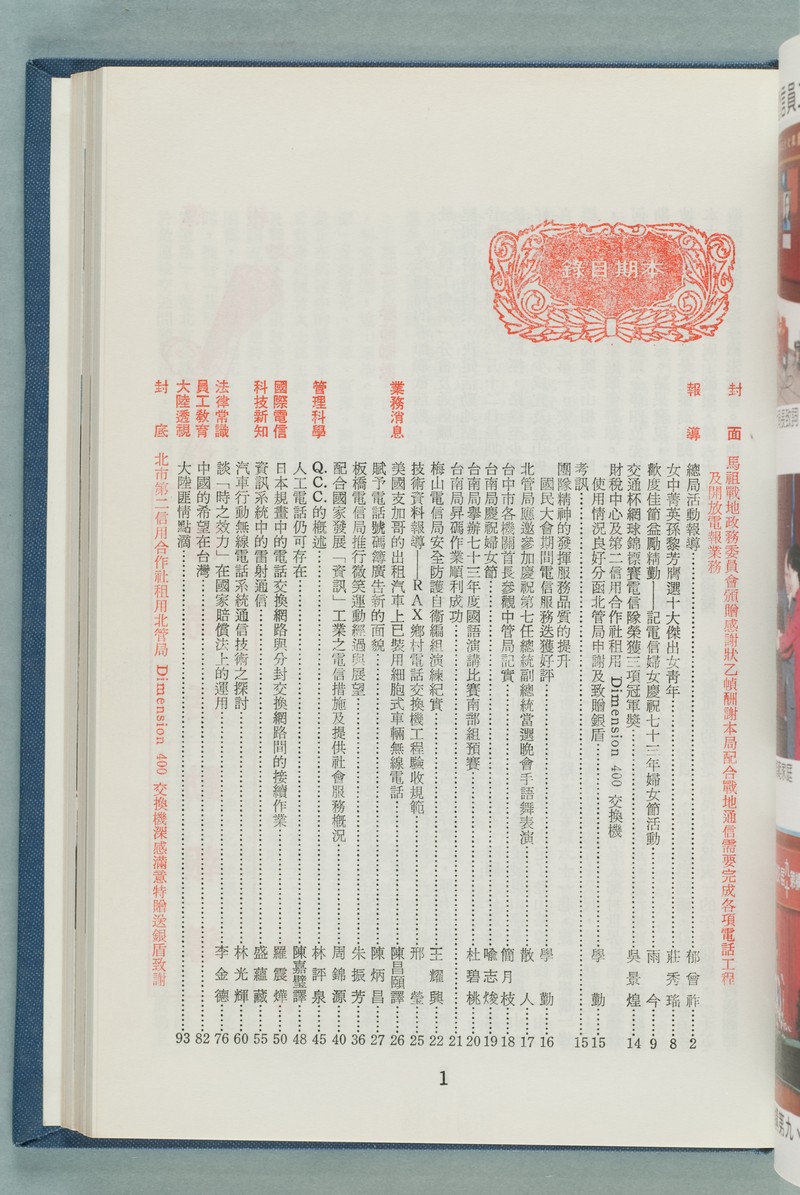 本期目錄
封面
馬祖戰地政務委員會頒贈感謝狀乙幀酬謝本局配合戰地通信需要完成各項電話工程
及開放電報業務
報導
總局活動報導⋯⋯郁曾祚⋯⋯2
女中菁英孫黎芳膺選十大傑出女青年⋯⋯莊秀瑤⋯⋯8
歡度佳節益勵精勤——記電信婦女慶祝七十三年婦女節活動⋯⋯雨今⋯⋯9
交通杯網球錦標賽電信隊榮獲三項冠軍獎⋯⋯吳景煌⋯⋯14
財稅中心及第二信用合作社租用 Dimension 400 交換機
使用情況良好分函北管局申謝及致贈銀盾⋯⋯學勤⋯⋯15
考訊⋯⋯15
團隊精神的發揮服務品質的提升
國民大會期間電信服務迭獲好評⋯⋯學勤⋯⋯16
北管局應邀參加慶祝第七任總統副總統當選晚會手語舞表演⋯⋯散人⋯⋯17
台中市各機關首長參觀中管局記實⋯⋯簡月枝⋯⋯18
台南局慶祝婦女節⋯⋯喩志焌⋯⋯19
台南局舉辦七十三年度國語演講比賽南部組預賽⋯⋯杜碧桃⋯⋯20
台南局昇碼作業順利成功⋯⋯21
梅山電信局安全防護自衛編組演練紀實⋯⋯王耀興⋯⋯22
業務消息
技術資料報導——RAX鄉村電話交換機工程驗收規範⋯⋯邢瑩⋯⋯25
美國支加哥的出租汽車上已裝用細胞式車輛無線電話⋯⋯陳昌頤譯⋯⋯26
賦予電話號碼簿廣告新的面貌⋯⋯陳炳昌⋯⋯27
板橋電信局推行微笑運動經過與展望⋯⋯朱振芳⋯⋯36
配合國家發展「資訊」工業之電信措施及提供社會服務概況⋯⋯周錦源⋯⋯40
管理科學
Q.C.C.的概述⋯⋯林評泉⋯⋯45
人工電話仍可存在⋯⋯陳嘉璧譯⋯⋯48
國際電信
日本規畫中的電話交換網路與分封交換網路間的接續作業⋯⋯羅震燁⋯⋯50
科技新知
資訊系統中的雷射通信⋯⋯盛蘊藏⋯⋯55
汽車行動無線電話系統通信技術之探討⋯⋯林光輝⋯⋯60
法律常識
談「時之效力」在國家賠償法上的運用⋯⋯李金德⋯⋯76
員工教育
中國的希望在台灣⋯⋯82
大陸透視
大陸匪情點滴⋯⋯93
封底
北市第二信用合作社租用北管局 Dimension 400 交換機深感滿意特贈送銀盾致謝
1